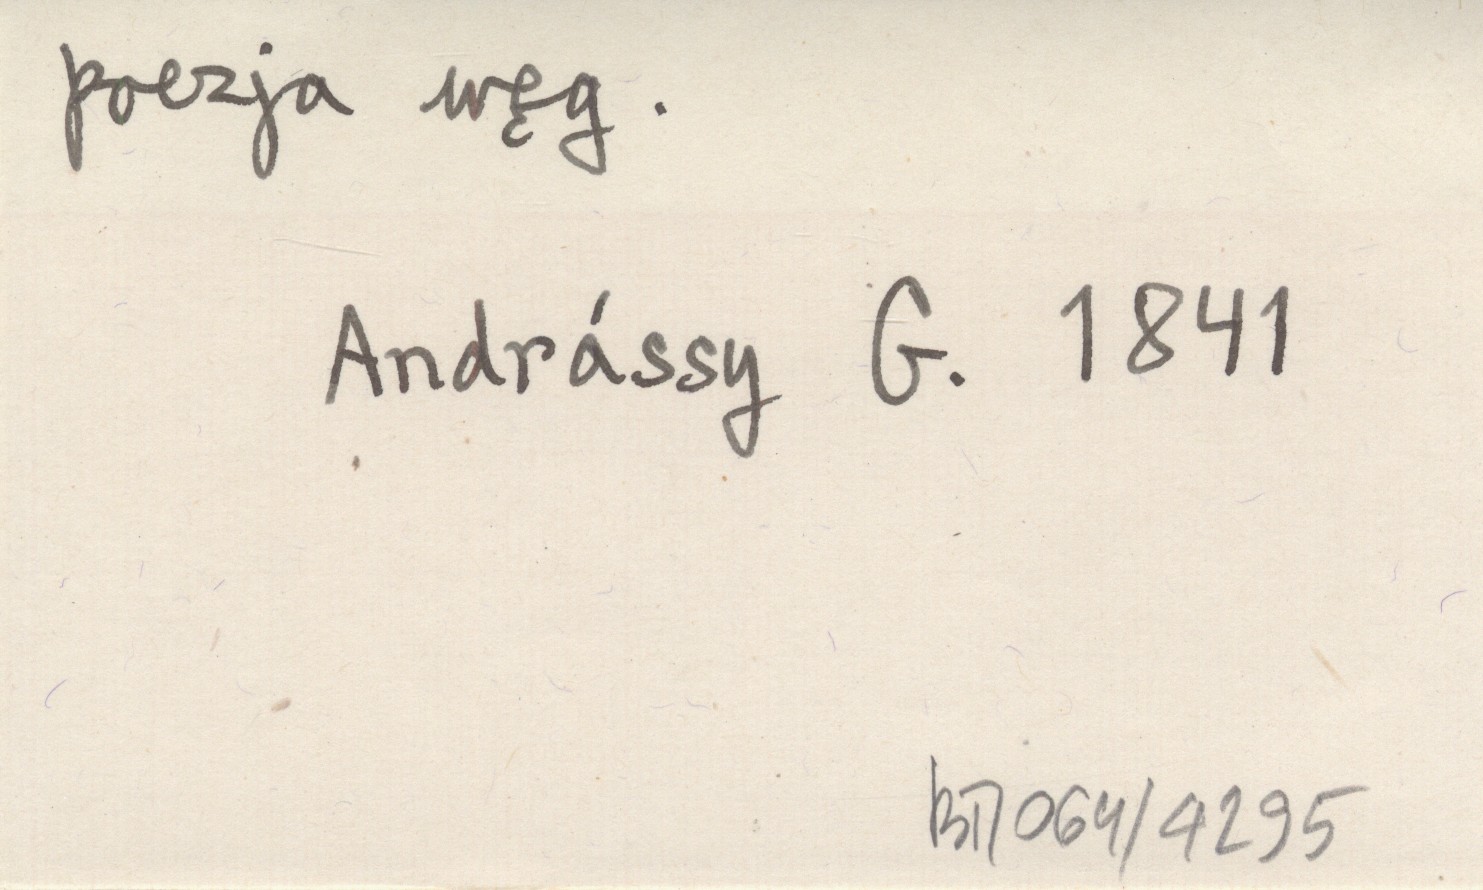 poezja węg.
Andrássy G. 1841
BП064/4295